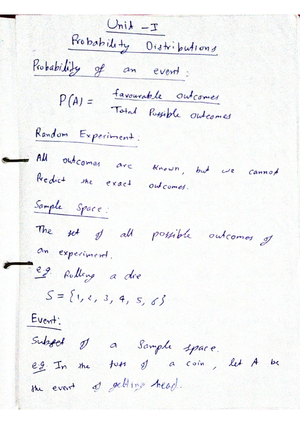 Unit - I
Probability Distributions
Probability of an event :
P(A) = favourable outcomes / Total Possible outcomes
Random Experiment.
All outcomes are known, but we cannot
Predict the exact outcomes.
Sample Space :
The set of all possible outcomes of
an experiment.
e.g Rolling a die
S = {1, 2, 3, 4, 5, 6}
Event:
Subset of a Sample space.
e.g In the toss of a coin, let A be
the event of getting head.